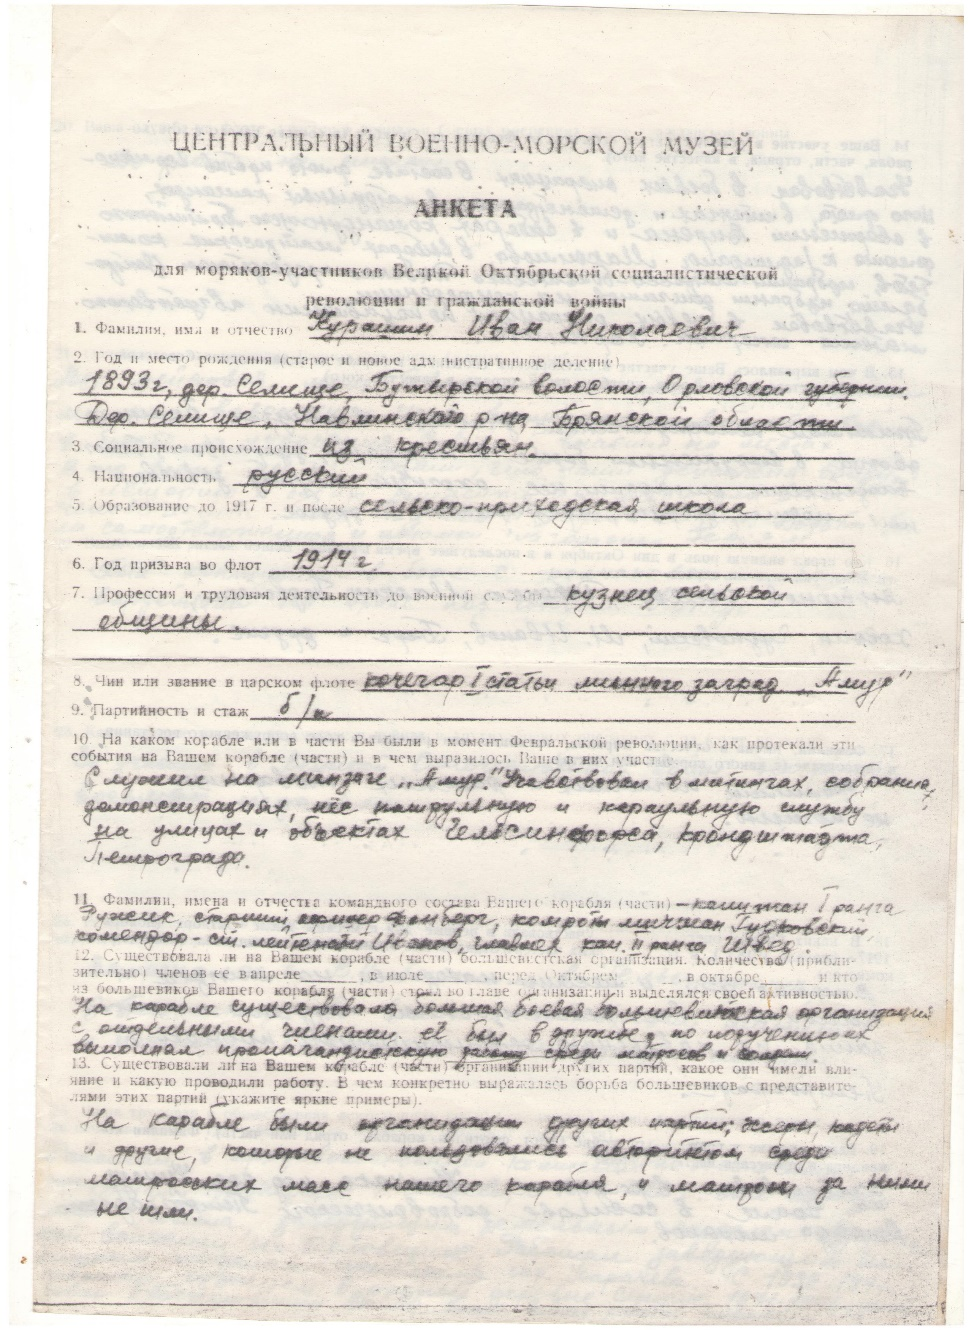 ЦЕНТРАЛЬНЫЙ ВОЕННО-МОРСКОЙ МУЗЕЙ
АНКЕТА
для моряков-участников Великой Октябрьской социалистической
революции и гражданской войны
1. Фамилия, имя и отчество Курашин Иван Николаевич
2. Год и место рождения (старое и новое административное деление)
1893г, дер. Селище, Бутырской волости, Орловской губернии.
Дер. Селище, Навлинского р-на Брянской области
3. Социальное происхождение из крестьян.
4. Национальность русский
5. Образование до 1917 г. и после сельско-приходская школа
6. Год призыва во флот 1914 г.
7. Профессия и трудовая деятельность до военной службы кузнец сельской
общины.
8. Чин или звание в царском флоте кочегар I статьи минного заград „Амур"
9. Партийность и стаж б/п
10. На каком корабле или в части Вы были в момент Февральской революции, как протекали эти
события на Вашем корабле (части) и в чем выразилось Ваше в них участ
Служил на минзаге „Амур." Учавствовал в митингах, собрания,
демонстрациях, нёс патрульную и караульную службу
на улицах и объектах Гельсингфорса, Кронштадта,
Петрограда.
11. Фамилии, имена и отчества командного состава Вашего корабля (части) – капитан I ранга
Ружек, старший офицер Фонберг, комроты мичман Гудковский,
комендор - ст. лейтенант Иванов, главмех кап. II ранга Швед.
12. Существовала ли на Вашем корабле (части) большевистская организация. Количество (прибли-
зительно) членов ее в апреле , в июле , перед Октябрем , в октябре и кто
из большевиков Вашего корабля (части) стоял во главе организации и выделялся своей активностью.
На карабле существовала большая боевая большевистская организация
с отдельными членами её был в дружбе, по поручению их
выполнял пропагандистскую работу среди матросов и солдат.
13. Существовали ли на Вашем корабле (части) организации других партий, какое они имели вли-
яние и какую проводили работу. В чем конкретно выражалась борьба большевиков с представите-
лями этих партий (укажите яркие примеры).
На карабле были организации других партий; эсеры, кадеты
и другие, которые не пользовались авторитетом среди
матросских масс нашего карабля, и матросы за ними
не шли.